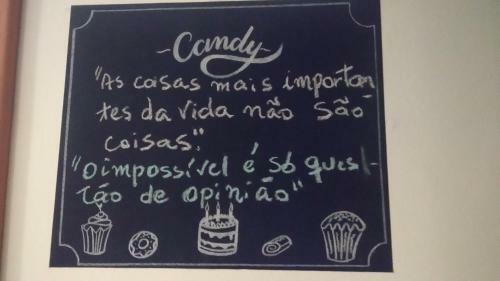 Candy
"As coisas mais importan
tes da vida não são
coisas."
"O impossível é só ques-
tão de opinião"